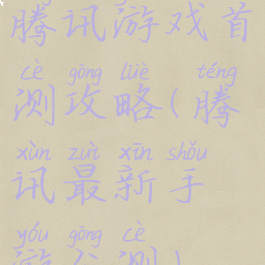 腾讯游戏首
cè gōng lüè téng
测攻略(腾
xùn zuì xīn shǒu
讯最新手
yóu gōng cè
游公测)